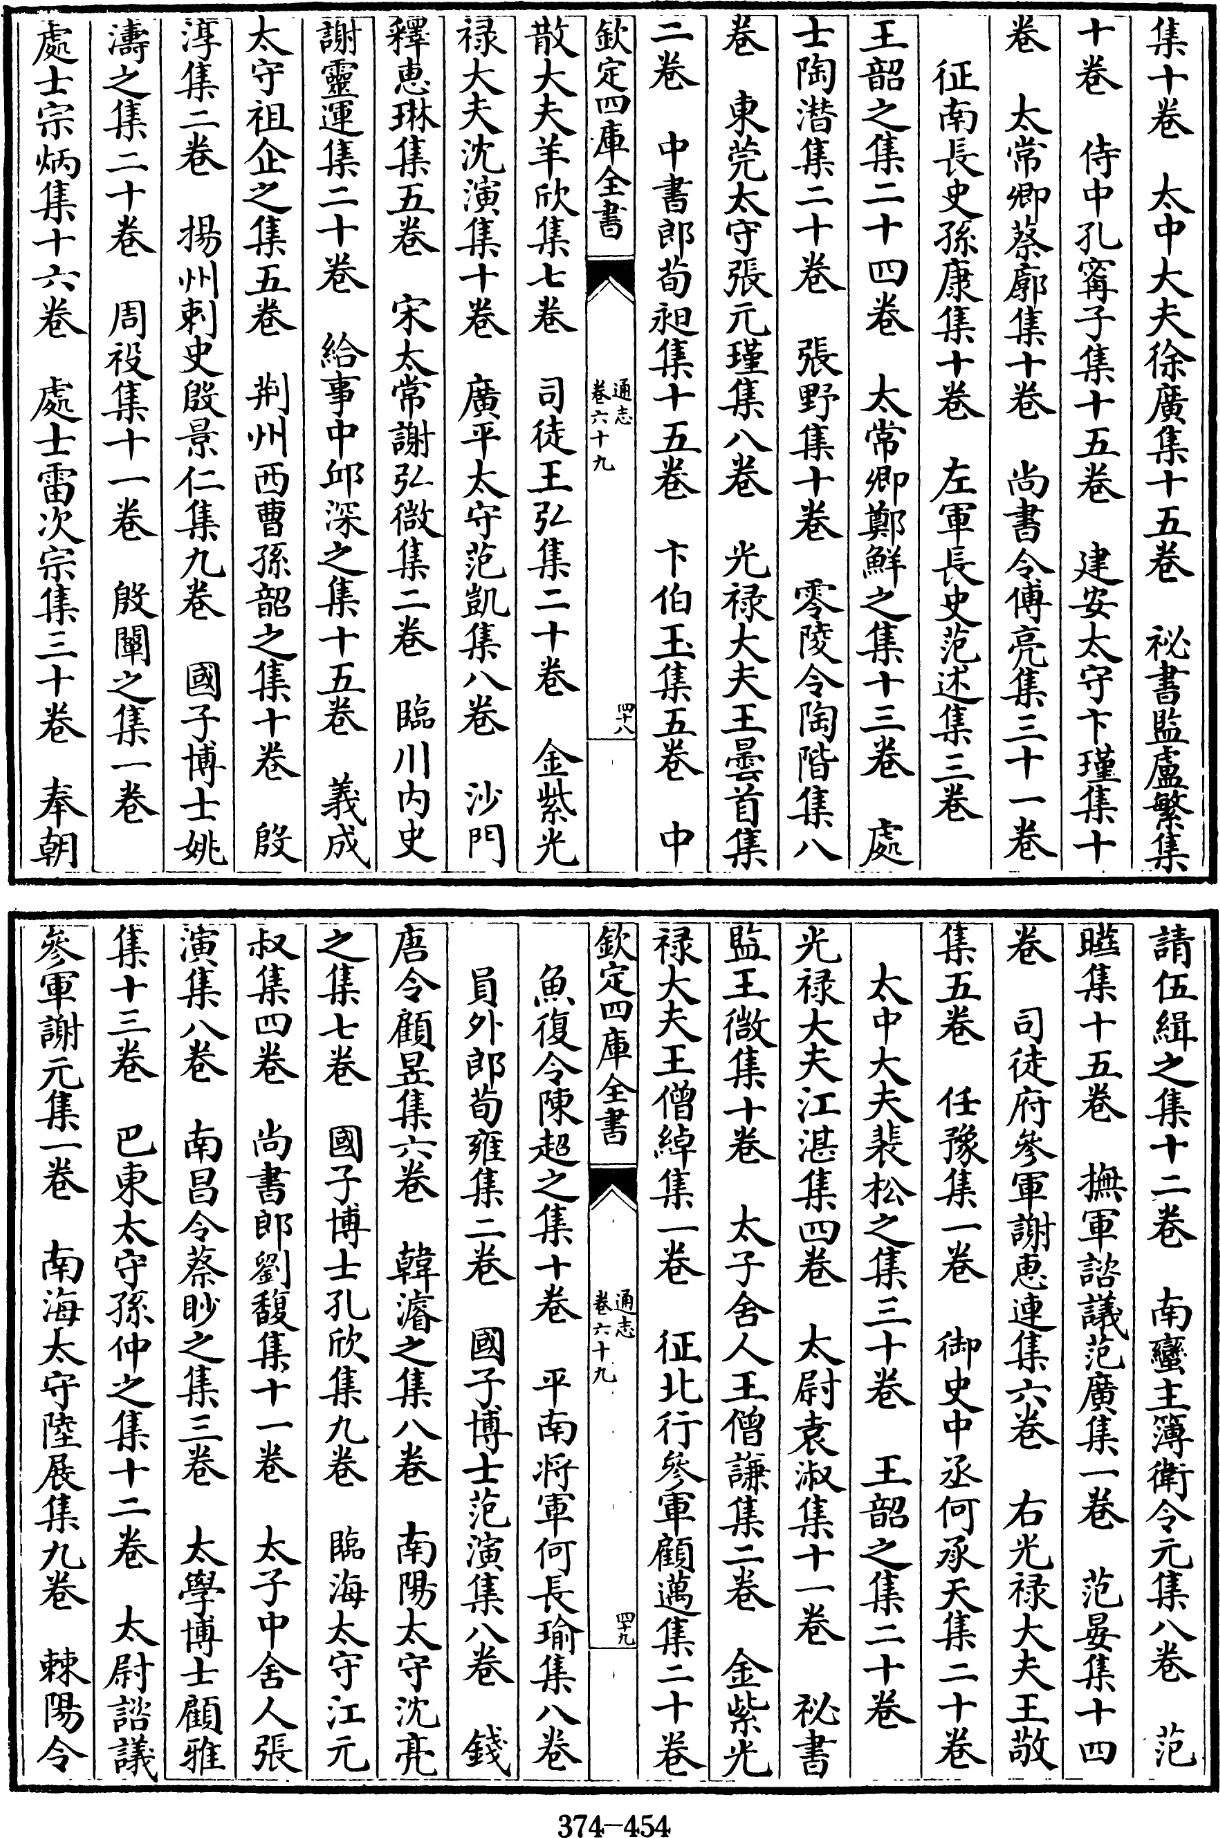 集十卷　太中大夫徐廣集十五卷　祕書監盧繁集
十卷　侍中孔寗子集十五卷　建安太守卞瑾集十
卷　太常卿蔡廓集十卷　尚書令傅亮集三十一卷
征南長史孫康集十卷　左軍長史范述集三卷
王韶之集二十四卷　太常卿鄭鮮之集十三卷　處
士陶潛集二十卷　張野集十卷　零陵令陶階集八
卷　東莞太守張元瑾集八卷　光禄大夫王曇首集
二卷　中書郎荀昶集十五卷　卞伯玉集五卷　中
欽定四庫全書
通志
卷六十九
四十八
散大夫羊欣集七卷　司徒王弘集二十卷　金紫光
禄大夫沈演集十卷　廣平太守范凱集八卷　沙門
釋惠琳集五卷　宋太常謝弘微集二卷　臨川内史
謝靈運集二十卷　給事中邱深之集十五卷　義成
太守祖企之集五卷　荆州西曹孫韶之集十卷　殷
淳集二卷　揚州刺史殷景仁集九卷　國子博士姚
濤之集二十卷　周祋集十一卷　殷闡之集一卷
處士宗炳集十六卷　處士雷次宗集三十卷　奉朝
請伍緝之集十二卷　南蠻主簿衛令元集八卷　范
曄集十五卷　撫軍諮議范廣集一卷　范晏集十四
卷　司徒府參軍謝惠連集六卷　右光禄大夫王敬
集五卷　任豫集一卷　御史中丞何承天集二十卷
太中大夫裴松之集三十卷　王韶之集二十卷
光禄大夫江湛集四卷　太尉袁淑集十一卷　祕書
監王微集十卷　太子舍人王僧謙集二卷　金紫光
禄大夫王僧綽集一卷　征北行參軍顧邁集二十卷
欽定四庫全書
通志
卷六十九
四十九
魚復令陳超之集十卷　平南將軍何長瑜集八卷
員外郎荀雍集二卷　國子博士范演集八卷　錢
唐令顧昱集六卷　韓濬之集八卷　南陽太守沈亮
之集七卷　國子博士孔欣集九卷　臨海太守江元
叔集四卷　尚書郎劉馥集十一卷　太子中舍人張
演集八卷　南昌令蔡眇之集三卷　太學博士顧雅
集十三卷　巴東太守孫仲之集十二卷　太尉諮議
參軍謝元集一卷　南海太守陸展集九卷　棘陽令
374-454